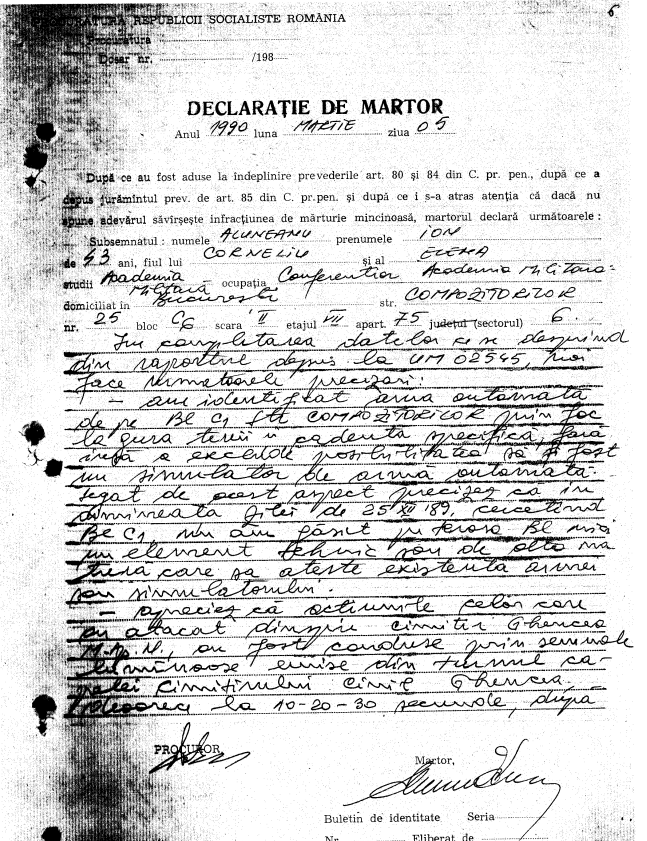 6
PROCURATURA REPUBLICII SOCIALISTE ROMÂNIA
Procuratura
Dosar nr. /198
DECLARAŢIE DE MARTOR
Anul 1990 luna MARTIE ziua 05
După ce au fost aduse la îndeplinire prevederile art. 80 şi 84 din C. pr. pen., după ce a
depus jurămîntul prev. de art. 85 din C. pr.pen. şi după ce i s-a atras atenţia că dacă nu
spune adevărul săvîrşeşte infracţiunea de mărturie mincinoasă, martorul declară următoarele :
Subsemnatul : numele ALUNEANU prenumele ION
de 43 ani, fiul lui CORNELIU şi al ELENA
studii Academia Militară ocupaţia Conferentiar Academia Militara
domiciliat în Bucureşti str. COMPOZITORILOR
nr. 25 bloc C6 scara II etajul VII apart. 75 judeţul (sectorul) 6
In completarea datelor ce se desprind
din raportul depus la UM 02545, mai
face urmatoarele precizari:
- am identificat arma automata
de pe Bl C1 str COMPOZITORILOR prin foc
la gura tevii si cadenta specifică, fără
insă a exclude posibilitatea să fi fost
un simulator de arma automata.
Legat de acest aspect precizez că in
dimineata zilei de 25 XII '89, cercetînd
Bl C1 nu am găsit pe terasa Bl nici
un element tehnic sau de alta na
tură care sa ateste existenta armei
sau simulatorului.
- apreciez că actiunile celor care
au atacat dinspre cimitir Ghencea
M.Ap.N., au fost conduse prin semnale
luminoase emise din turnul ca-
pelei Cimitirului Civil Ghencea.
Deoarece la 10-20-30 secunde, după
PROCUROR
Martor,
Buletin de identitate Seria
Nr. Eliberat de